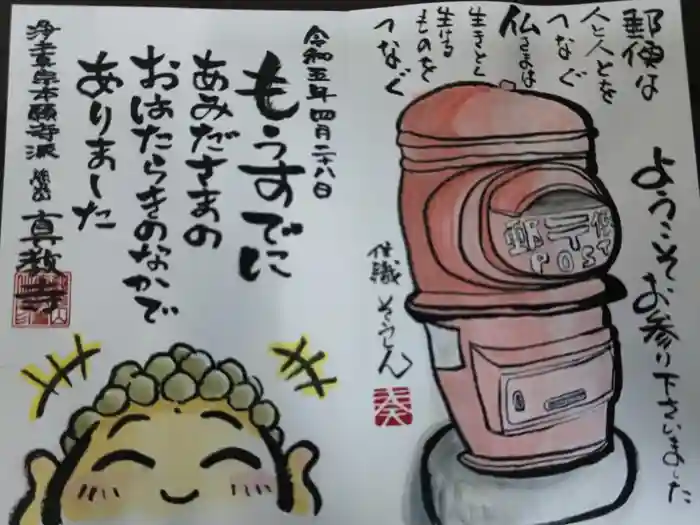 郵便は
人と人とを
つなぐ
仏さまは
生きとし
生ける
ものを
つなぐ
ようこそお参り下さいました
郵〒便
POST
住職 そうしん
奏
令和五年四月二十八日
もうすでに
あみださまの
おはたらきのなかで
ありました
浄土真宗本願寺派
真教寺